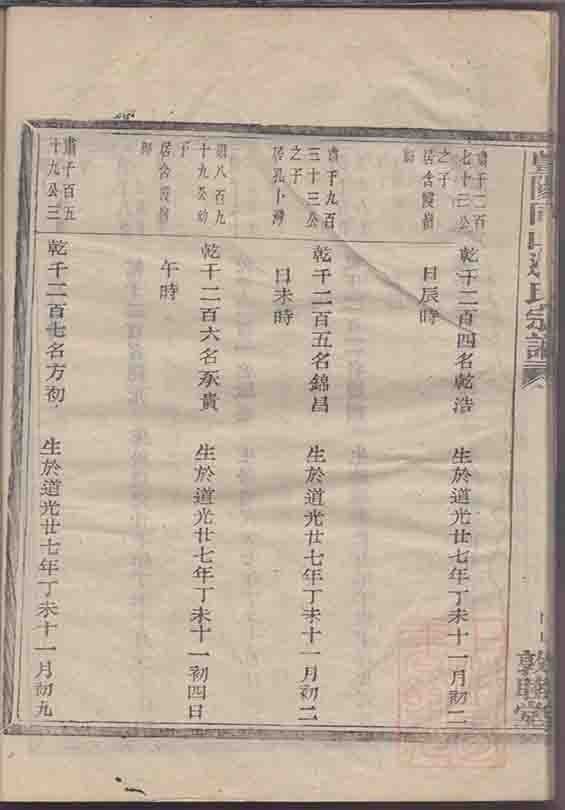 肅千二百
七十二公
之子
居含陵嶺
乾千二百四名乾浩 生於道光廿七年丁未十一月初二
日辰時
肅千九百
三十三公
之子
居孔卜灣
乾千二百五名錦昌 生於道光廿七年丁未十一月初二
日未時
肅八百九
十九公幼
子
乾千二百六名永貴 生於道光廿七年丁未十一初四日
午時
肅千百五
十九公三
乾千二百七名方初 生於道光廿七年丁未十一月初九